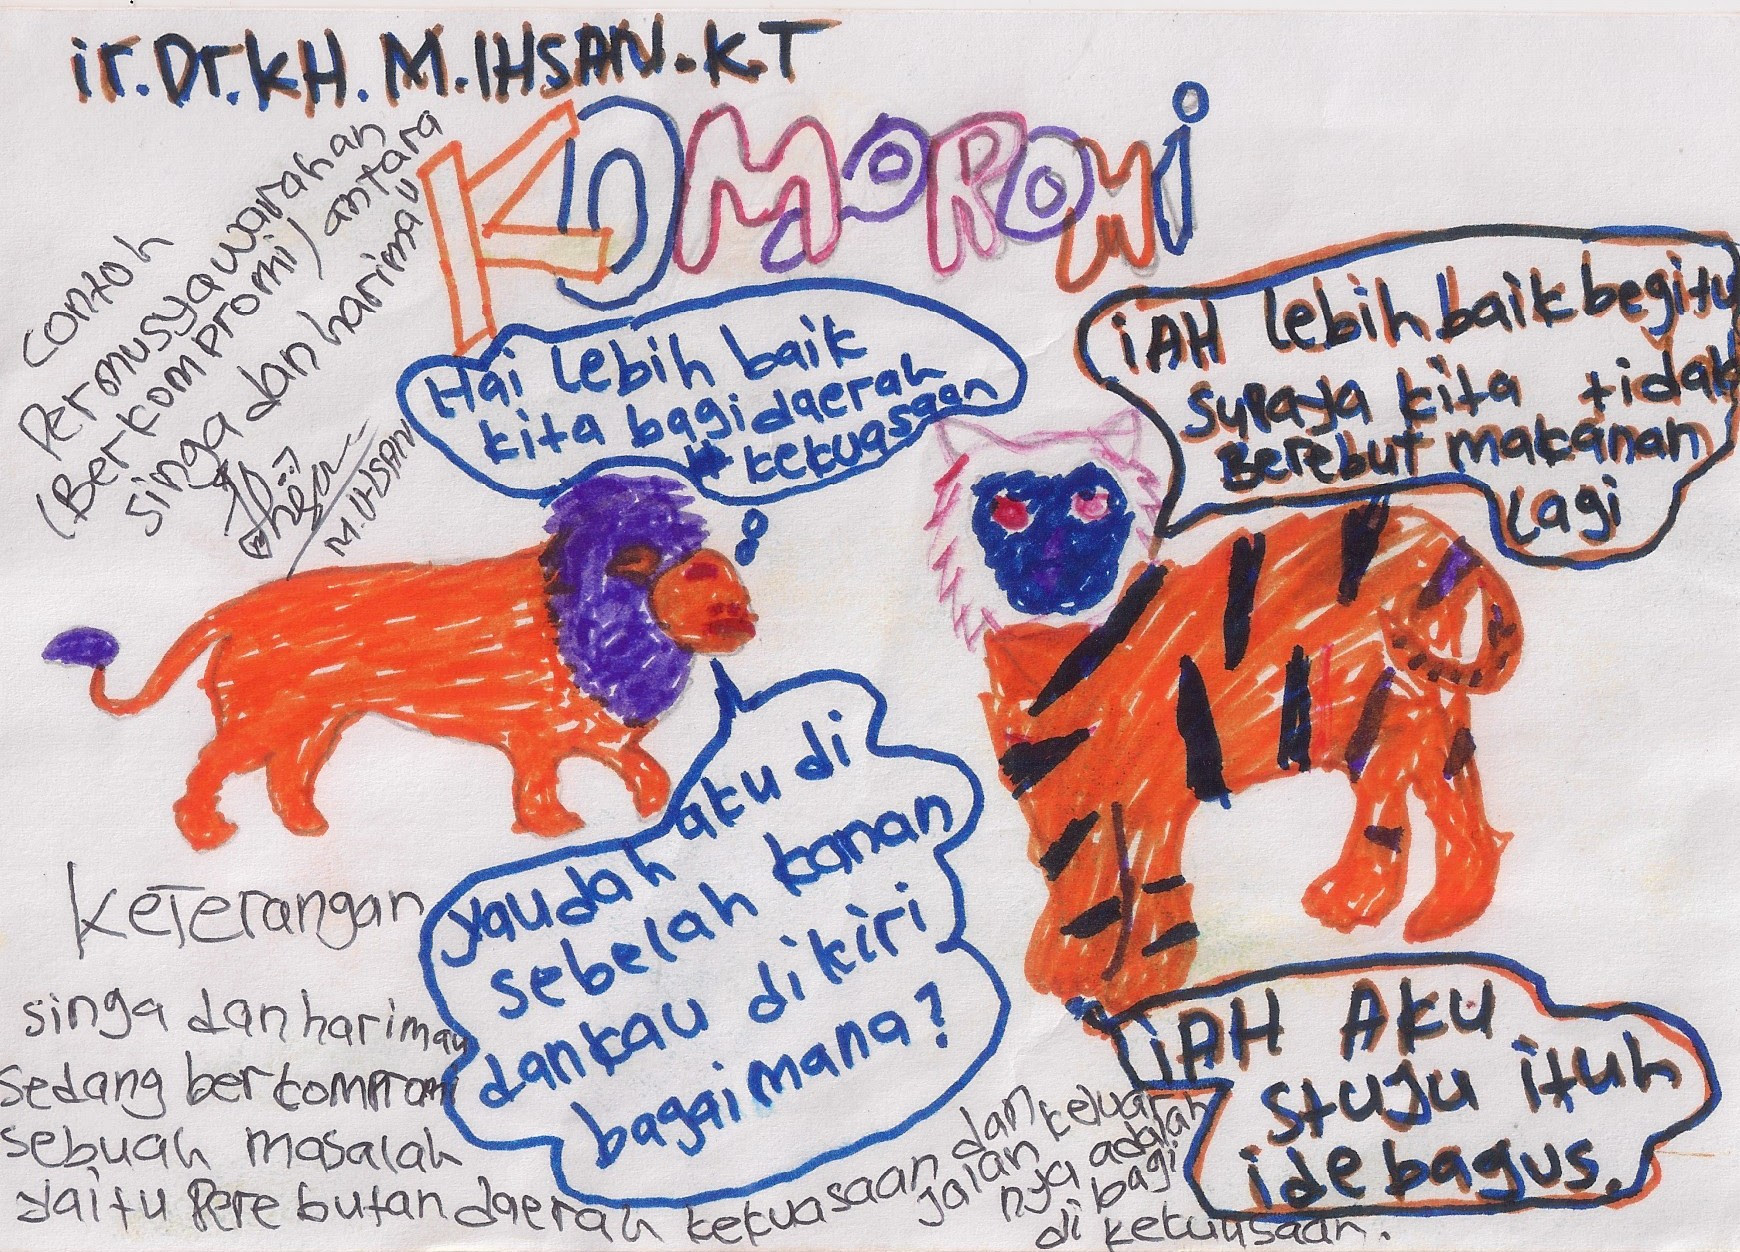 ir.Dr.KH.M.IHSAN.K.T
KOMPROMi
contoh
Permusyawarahan
(Berkompromi) antara
singa dan harimau
M.IHSAN
Hai lebih baik
kita bagi daerah
kekuasaan
iAH lebih baik begitu
supaya kita tidak
Berebut makanan
Lagi
yaudah aku di
sebelah kanan
dan kau di kiri
bagaimana?
iAH AKU
stuju ituh
ide bagus.
Keterangan
singa dan harimau
sedang berkompromi
sebuah masalah
yaitu Perebutan daerah kekuasaan dan keluar
jalan nya adalah
di bagi
di kekuasaan.